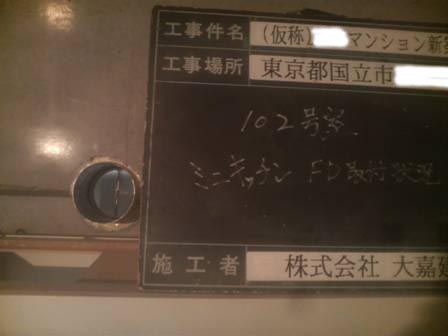 工事件名 (仮称) マンション新
工事場所 東京都国立市
102号室
ミニキッチン FD取付状況
施工者 株式会社 大嘉建